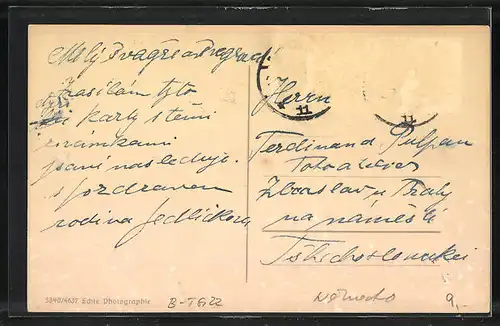 Milý Švagře a Švagrová!
zasílám tyto
karty s těmi
známkami
psaní následuje.
s pozdravem
rodina Jedličkova
Herrn
Ferdinand Pulpan
Zbraslav u Prahy
na náměstí
Tschichoslovakei
11
11
5340/4637 Echte Photographie
B-TG22
Německo
9,-